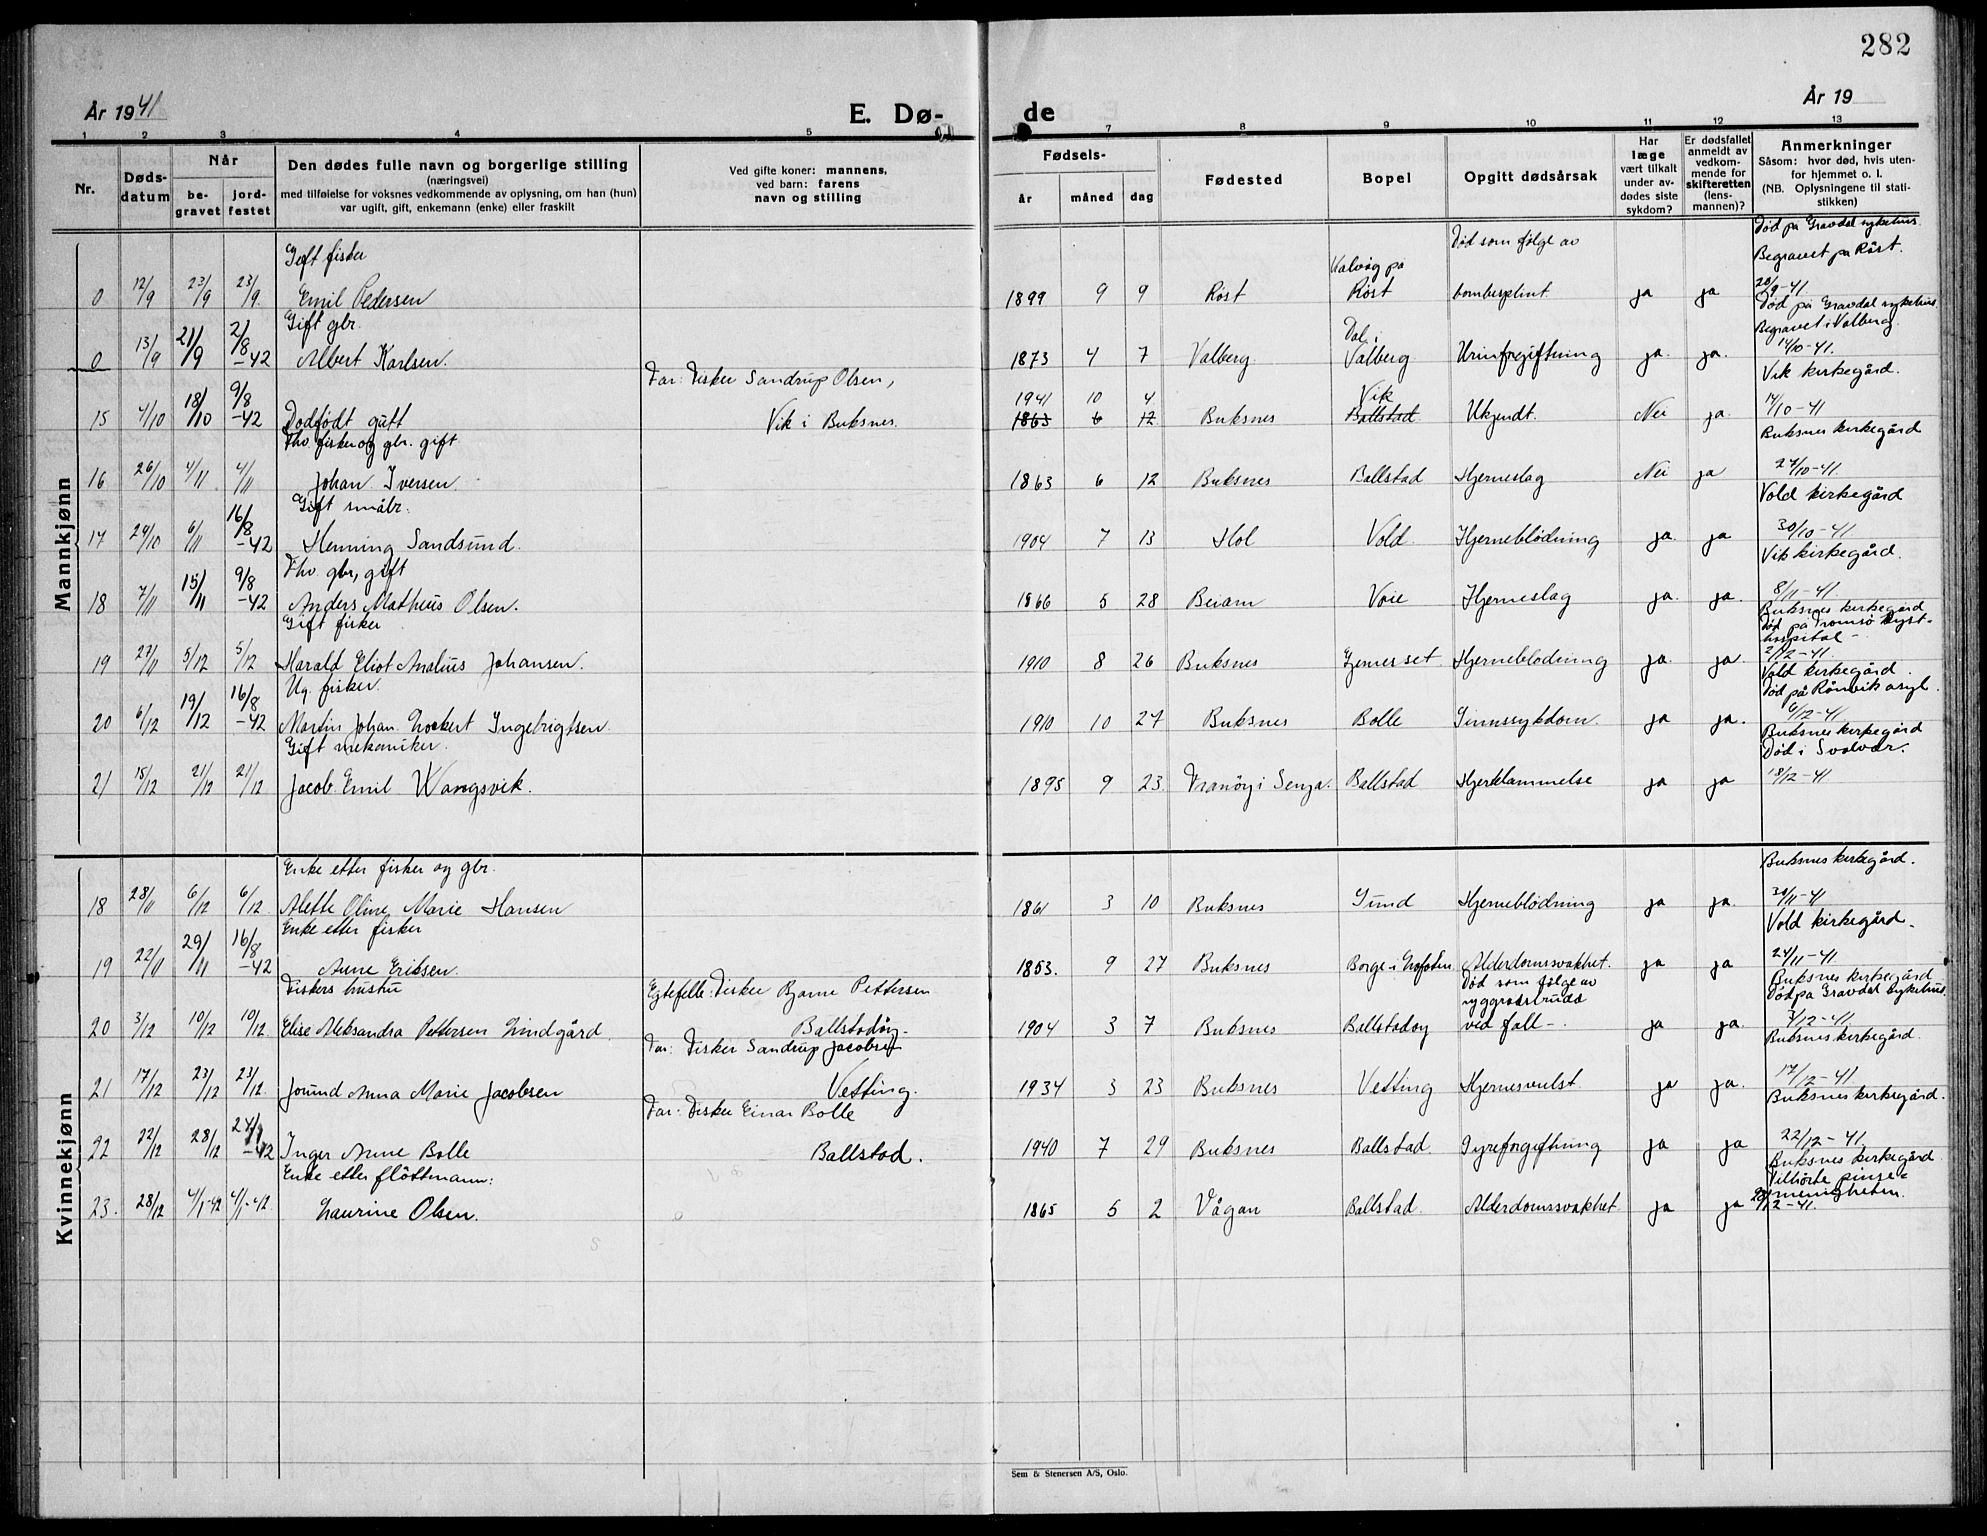 282
År 1941
E. Dø-
de
År 19
1 2 3 4 5 7 8 9 10 11 12 13
Nr.
Døds-
datum
Når
be-
gravet
jord-
festet
Den dødes fulle navn og borgerlige stilling
(næringsvei)
med tilføielse for voksnes vedkommende av oplysning, om han (hun)
var ugift, gift, enkemann (enke) eller fraskilt
Ved gifte koner: mannens,
ved barn: farens
navn og stilling
Fødsels-
år måned dag
Fødested
Bopel
Opgitt dødsårsak
Har
læge
vært tilkalt
under av-
dødes siste
sykdom?
Er dødsfallet
anmeldt av
vedkom-
mende for
skifteretten
(lens-
mannen)?
Anmerkninger
Såsom: hvor død, hvis uten-
for hjemmet o. l.
(NB. Oplysningene til stati-
stikken)
Mannkjønn
Gift fisker Død som følge av Død på Gravdal sykehus.
Kalvåg på Begravet på Röst.
0 12/9 23/9 23/9 Emil Pedersen 1899 9 9 Röst Röst bombesplint. ja ja 20/9-41.
Gift gbr. Dal i Død på Gravdal sykehus.
Begravet i Valberg.
0 13/9 21/9 2/8-42 Albert Karlsen. 1873 4 7 Valberg Valberg Urinforgiftning ja. ja. 14/10-41.
Far: Fisker Sandrup Olsen, 1941 10 4 Vik Vik kirkegård.
15 4/10 18/10 9/8-42 Dødfødt gutt Vik i Buksnes. 1863 6 12 Buksnes Ballstad Ukjendt. Nei ja. 14/10-41
Fhv fisker og gbr. gift Buksnes kirkegård
16 26/10 4/11 4/11 Johan Iversen. 1863 6 12 Buksnes Ballstad Hjerneslag Nei ja 27/10-41.
Gift småbr. Vold kirkegård
17 29/10 6/11 16/8-42 Henning Sandsund. 1904 7 13 Hol Vold. Hjerneblödning ja. ja 30/10-41
Fhv gbr, gift Vik kirkegård.
18 7/11 15/11 9/8-42 Anders Matheus Olsen. 1866 5 28 Beiarn Voie Hjerneslag ja. ja. 8/11-41.
Gift fisker Buksnes kirkegård
Død på Tromsö kyst-
hospital-
19 27/11 5/12 5/12 Harald Eliot Analius Johansen. 1910 8 26 Buksnes Gjerserset Hjerneblödning ja. ja. 2/12-41.
Ug. fisker. Vold kirkegård.
Död på Rönvik asyl.
20 6/12 19/12 16/8-42 Martin Johan Lockert Ingebrigtsen. 1910 10 27 Buksnes Bolle Sinnssykdom. ja ja. 9/12-41.
Gift mekaniker. Buksnes kirkegård
Død i Svolvær.
21 15/12 21/12 21/12 Jacob Emil Wangsvik. 1895 9 23. Tranöy i Senja. Ballstad Hjertelammelse ja ja 18/12-41
Kvinnekjønn
Enke etter fisker og gbr. Buksnes kirkegård.
18 28/11 6/12 6/12 Alette Oline Marie Hansen 1861 3 10 Buksnes Sund Hjerneblödning ja ja. 30/11-41
Enke etter fisker Vold kirkegård.
19 22/11 29/11 16/8-42 Anne Eriksen. 1853. 9 27 Buksnes Borge i Lofoten. Alderdomssvakhet. ja ja 24/11-41.
Fiskers hustru Egtefelle: Fisker Bjarne Pettersen Död som følge av Buksnes kirkegård
ryggradsbrudd Död på Gravdal sykehus.
20 3/12 10/12 10/12 Elise Aleksandra Pettersen Lindgård. Ballstadöy- 1904 3 7 Buksnes Ballstadöy ved fall-. ja ja. 3/12-41.
Far: Fisker Sandrup Jacobsen Buksnes kirkegård.
21 17/12 23/12 23/12. Jorund Anna Marie Jacobsen Vetting. 1934 3 23 Buksnes Vetting Hjernesvulst ja ja. 17/12-41.
Far: Fisker Einar Bolle Buksnes kirkegård.
22 22/12 28/12 24/1-42 Inger Anne Bolle Ballstad. 1940 7 29 Buksnes Ballstad. Syreforgiftning ja ja 22/12-41.
Enke etter fløttmann: Buksnes kirkegård
Tilhörte pinse-
menigheten.
23. 28/12 4/1-42 4/1-42. Laurine Olsen. 1865 5 2 Vågan Ballstad. Alderdomssvakhet ja ja 29/12-41.
Sem & Stenersen A/S, Oslo.